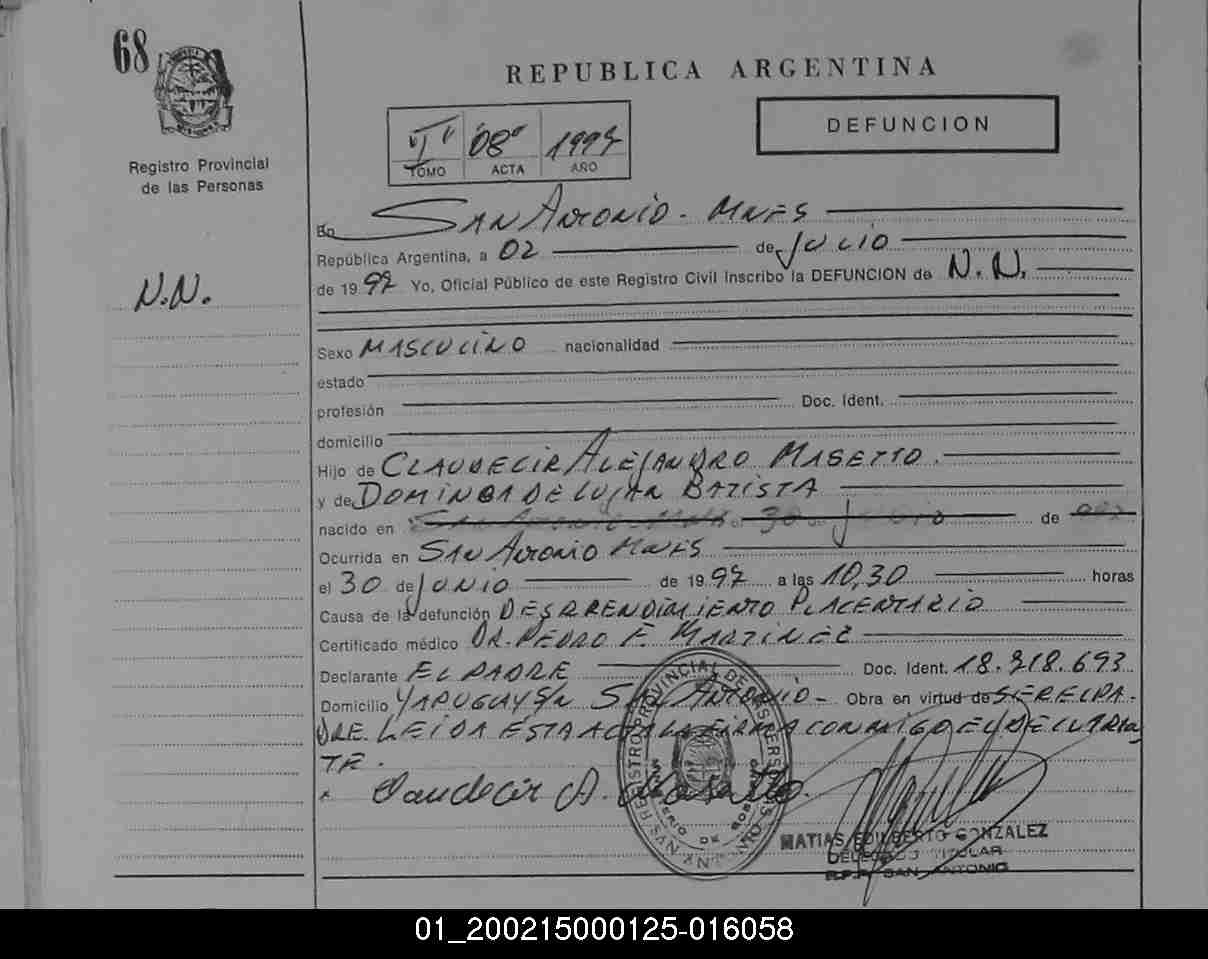 68
REPUBLICA ARGENTINA
DEFUNCION
"I" "08" 1997
TOMO ACTA AÑO
Registro Provincial
de las Personas
N.N.
En SAN ANTONIO - MNES
República Argentina, a 02 de JULIO
de 1997 Yo, Oficial Público de este Registro Civil inscribo la DEFUNCION de N.N.
Sexo MASCULINO nacionalidad
estado
profesión Doc. Ident.
domicilio
Hijo de CLAUDECIR ALEJANDRO MASETTO.
y de DOMINGA DE LUJAN BATISTA
nacido en SAN ANTONIO MNES el 30 de JUNIO de 997
Ocurrida en SAN ANTONIO MNES
el 30 de JUNIO de 1997 a las 10,30 horas
Causa de la defunción DESPRENDIMIENTO PLACENTARIO
Certificado médico DR. PEDRO F. MARTINEZ
Declarante EL PADRE Doc. Ident. 18.318.693
Domicilio YAPUGUAY SN SAN ANTONIO - Obra en virtud de SER EL PA-
DRE. LEIDA ESTA ACTA LA FIRMA CONMIGO EL DECLARAN
TE.
Claudecir A. Masetto.
REGISTRO PROVINCIAL DE LAS PERSONAS
MINISTERIO DE GOBIERNO
MATIAS EDILBERTO GONZALEZ
DELEGADO TITULAR
R.P.P. SAN ANTONIO
01_200215000125-016058